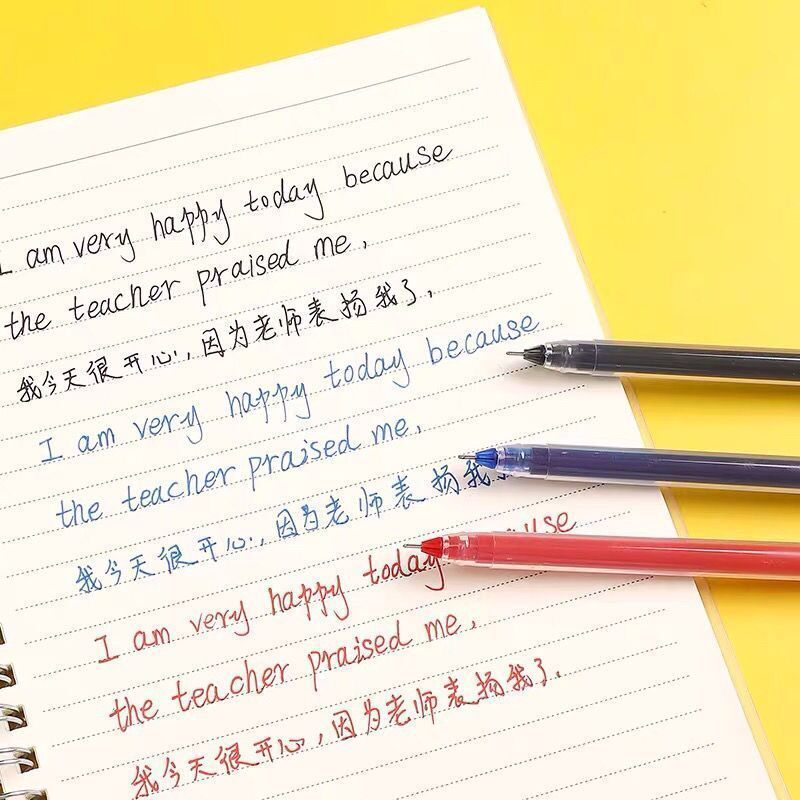 I am very happy today because
the teacher praised me.
我今天很开心,因为老师表扬我了.
I am very happy today because
the teacher praised me.
我今天很开心,因为老师表扬我了
I am very happy today because
the teacher praised me.
我今天很开心,因为老师表扬我了.